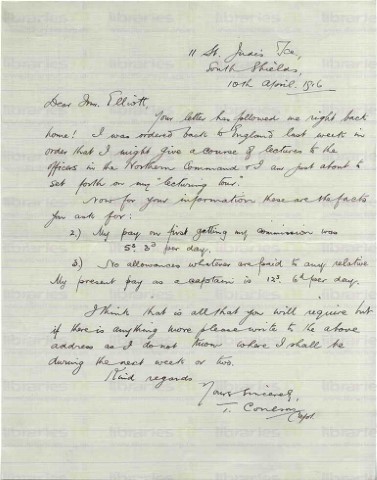 11 St. Jude's Tce,
South Shields,
10th April. 1916
Dear Mrs. Elliott,
Your letter has followed me right back
home! I was ordered back to England last week in
order that I might give a course of lectures to the
officers in the Northern Command & I am just about to
set forth on my "lecturing tour".
Now for your information these are the facts
you ask for:
2.) My pay on first getting my commission was
5s 3d per day.
3) No allowances whatever are paid to any relative
My present pay as a captain is 12s. 6d per day.
I think that is all that you will require but
if there is anything more please write to the above
address as I do not know where I shall be
during the next week or two.
Kind regards
Yours sincerely,
T.
Capt.
libraries